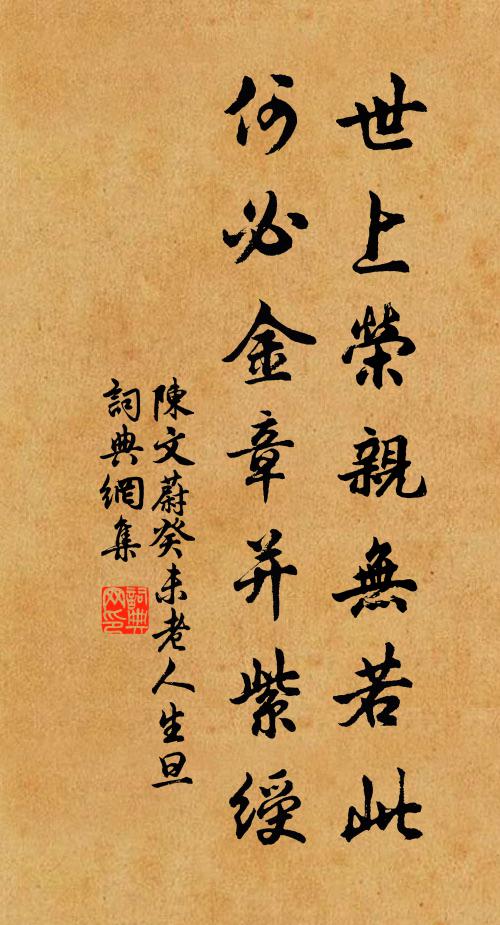 世上榮親無若此
何必金章并紫綬
陳文蔚癸未老人生旦
詞典網集
詞典
网印